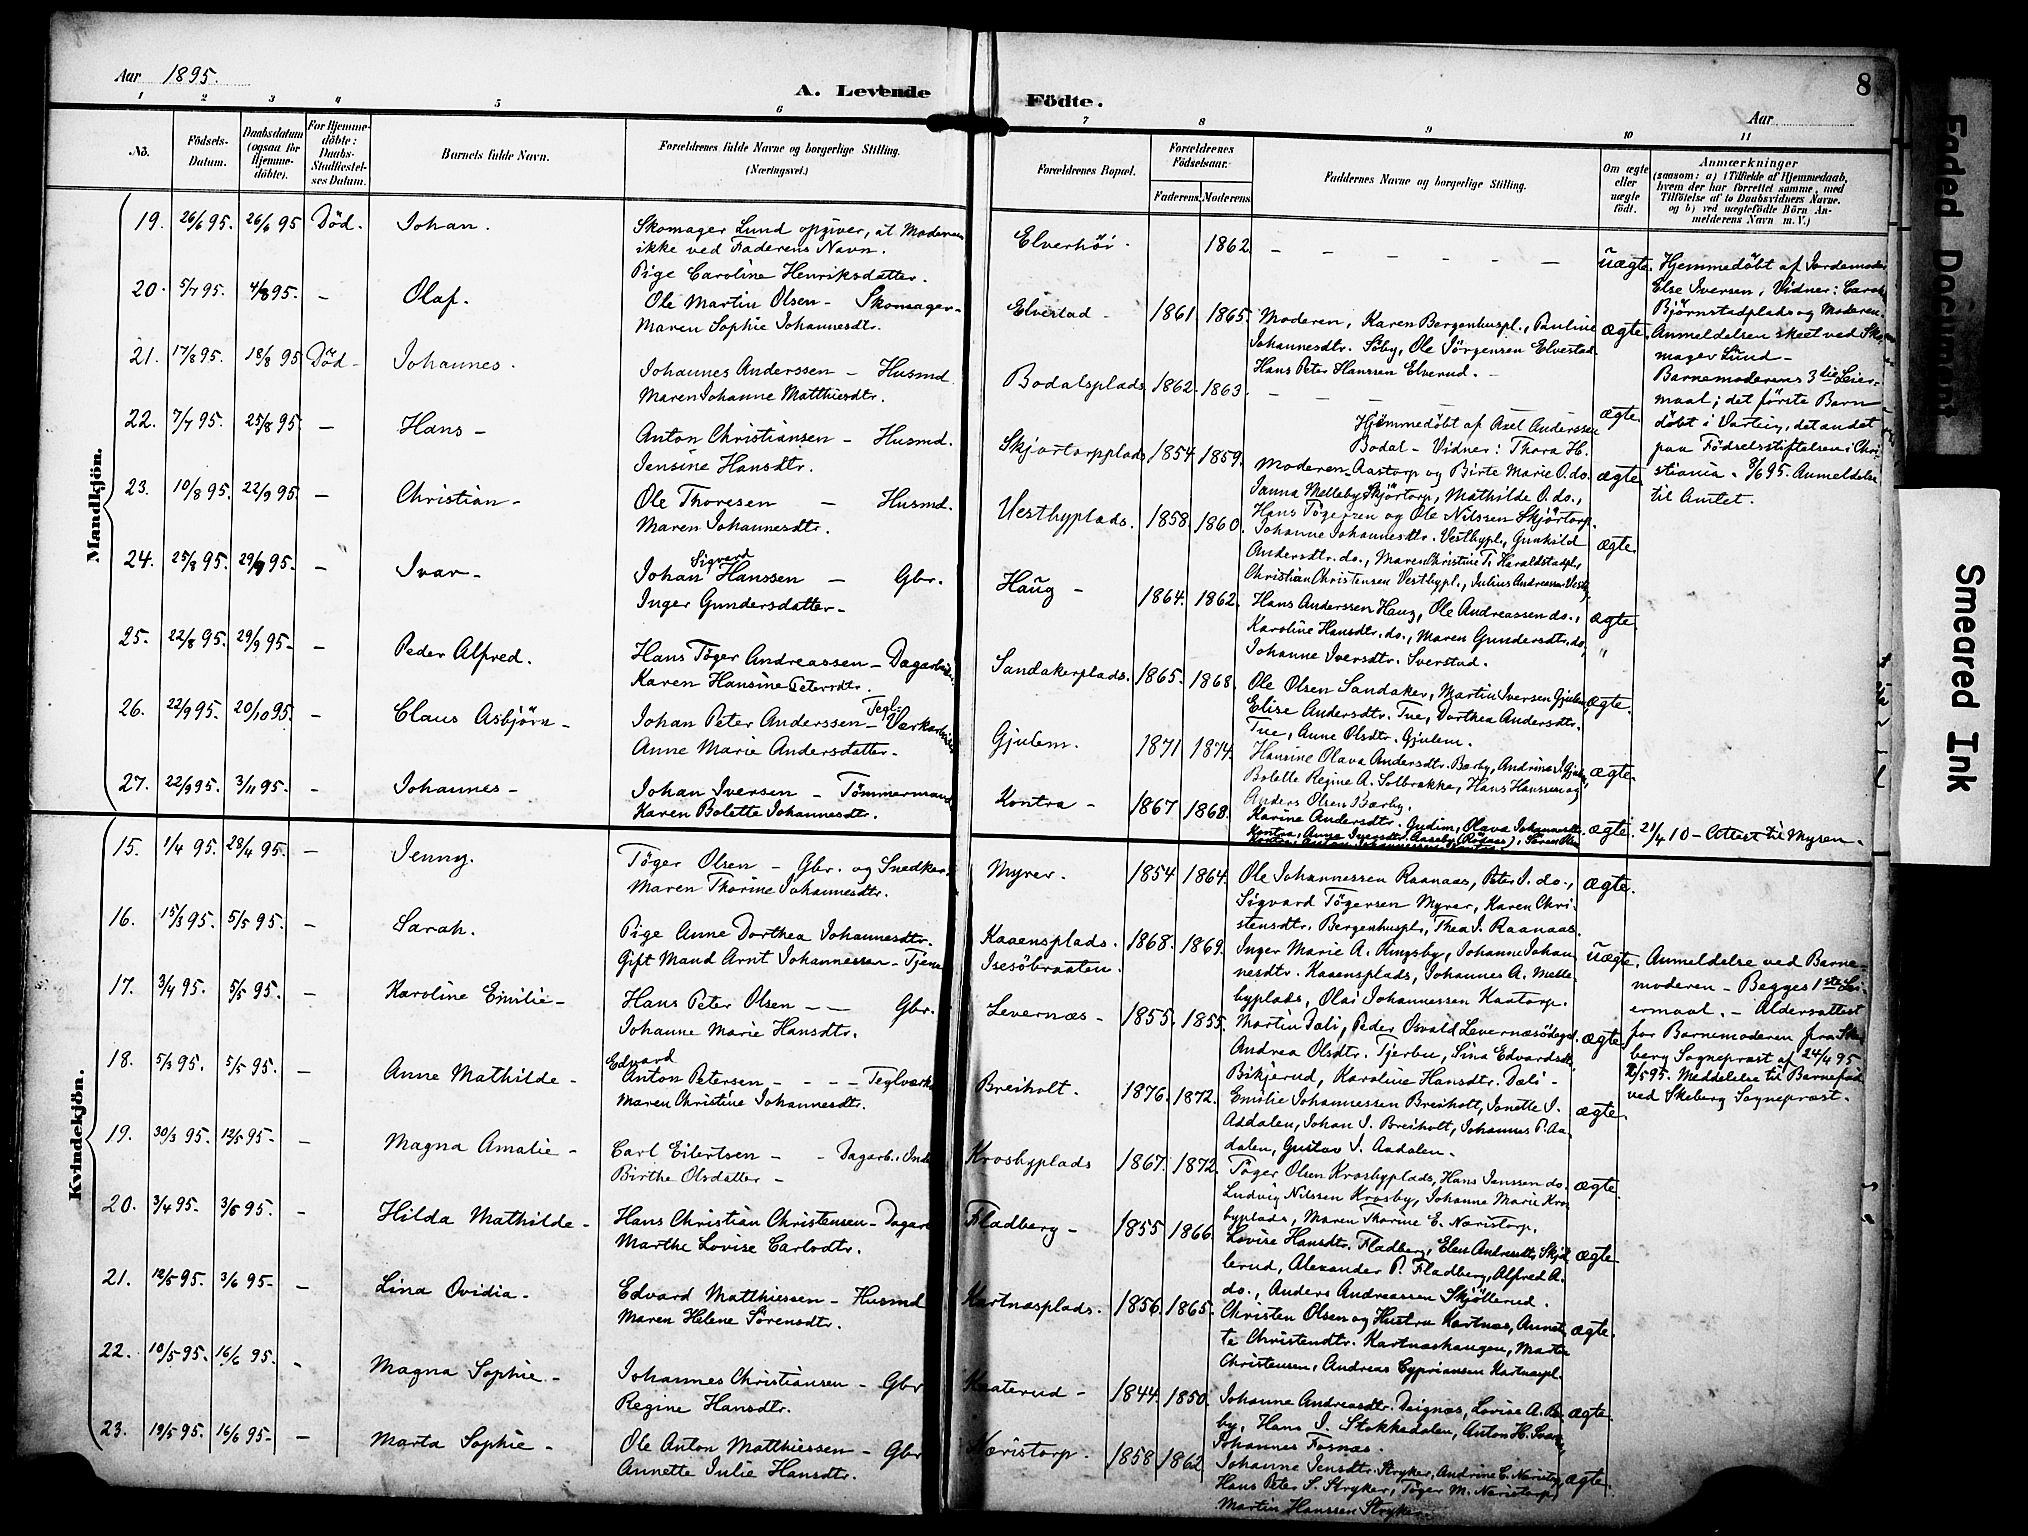 Aar 1895.
A. Levende Födte.
8
Aar
1 2 3 4 5 6 7 8 9 10 11
No.
Födsels-Datum.
Daabsdatum (ogsaa for Hjemmedöbte).
For Hjemmedöbte: Daabs-Stadfæstelses Datum.
Barnets fulde Navn.
Forældrenes fulde Navne og borgerlige Stilling. (Næringsvei.)
Forældrenes Bopæl.
Forældrenes Födselsaar.
Faderens. Moderens.
Faddernes Navne og borgerlige Stilling.
Om ægte eller uægte født.
Anmærkninger
(saasom: a) i Tilfælde af Hjemmedaab,
hvem der har forrettet samme, med
Tilföielse af to Daabsvidners Navne.
og b) ved uægtefödte Börn An-
melderens Navn m. V.)
Mandkjön.
19. 26/6 95. 26/6 95 Död. Johan.
Skomager Lund opgiver, at Moderen
ikke ved Faderens Navn.
Pige Caroline Henriksdatter.
Elverhöi. 1862. uægte.
Hjemmedöbt af Jordemoder
Else Iversen, Vidner:
Björnstadplads og Moderen.
Anmeldelsen skeet ved Sko-
mager Lund –
Barnemoderens 3die Leier-
maal; det første Barn
döbt i Varteig, det andet
paa Födselsstiftelsen i Chri-
stiania. 8/6 95. Anmeldelse
til Amtet.
20. 5/7 95. 4/8 95. – Olaf.
Ole Martin Olsen – Skomager –
Maren Sophie Johannesdtr.
Elvestad – 1861. 1865.
Moderen, Karen Bergenhuspl., Pauline
Johannesdtr. Söby, Ole Jörgensen Elvestad
Hans Peter Hanssen Elverud. –
ægte.
21. 17/8 95. 18/8 95 Död – Johannes.
Johannes Anderssen – Husmd.
Maren Johanne Matthiesdtr.
Bodalsplads 1862. 1863.
Hjemmedöbt af Axel Anderssen
Bodal – Vidner: Thora H.
Aastorp og Birte Marie O. do.
ægte.
22. 7/7 95. 25/8 95. – Hans –
Anton Christiansen – Husmd.
Jensine Hansdtr.
Skjortorpplads 1854. 1859.
Moderen –
Janna Melleby Skjörtorp, Mathilde O. do.,
Hans Tögersen og Ole Nilssen Skjörtorp.
ægte.
23. 10/8 95. 22/9 95. – Christian –
Ole Thoresen – Husmd.
Maren Johannesdtr.
Vestbyplads. 1858. 1860.
Johanne Johannesdtr. Vestbypl., Gunhild
Andersdtr. do., Maren Christine T. Haraldstadpl.,
Christian Christensen Vestbypl., Julius Andreassen
ægte.
24. 25/8 95. 29/9 95. – Ivar –
Johan Sigvard Hanssen – Gbr.
Inger Gundersdatter –
Haug – 1864. 1862.
Hans Anderssen Haug, Ole Andreassen do.,
Karoline Hansdtr. do., Maren Gundersdtr. do.,
Johanne Iversdtr. Sverstad.
ægte.
25. 22/8 95. 29/9 95. – Peder Alfred.
Hans Töger Andreassen – Dagarbeider.
Karen Hansine Petersdtr.
Sandakerplads. 1865. 1868.
Ole Olsen Sandaker, Martin Iversen Gjulem,
Elise Andersdtr. Tue, Dorthea Andersdtr.
Tue, Anne Olsdtr. Gjulem.
ægte.
26. 22/9 95. 20/10 95. – Claus Asbjörn –
Johan Peter Anderssen – Tegl-Værkarbeider
Anne Marie Andersdatter –
Gjulem. 1871 1874.
Hansine Olava Andersdtr. Bærby, Andrine J. Gjulem,
Bolette Regine A. Solbrække, Hans Hanssen og
Anders Olsen Bærby.
ægte.
27. 22/9 95. 3/11 95. – Johannes –
Johan Iversen – Tömmermand
Karen Bolette Johannesdtr.
Kontra – 1867 1868.
Karine Andersdtr. Gudim, Olava Johannesdtr.
ægte. 21/4 10 – Attest til Myren.
Kvindekjön.
15. 1/4 95. 28/4 95. – Jenny.
Töger Olsen – Gbr. og Snedker
Maren Thorine Johannesdtr.
Myrer. 1854 1864.
Ole Johannessen Raanaas, Peter J. do.,
Sigvard Tögersen Myrer, Karen Chri-
stensdtr. Bergenhuspl., Thea J. Raanaas.
ægte.
16. 15/3 95. 5/5 95. – Sarah.
Pige Anne Dorthea Johannesdtr.
Gift Mand Arnt Johannessen – Tjener
Kaaensplads. Isesöbraaten. 1868. 1869.
Inger Marie A. Ringsby, Johanne Johan-
nesdtr. Kaaensplads, Johannes A. Melle-
byplads, Olai Johannessen Kaatorp.
uægte.
Anmeldelse ved Barne-
moderen – Begges 1ste Lei-
ermaal. – Aldersattest
for Barnemoderen fra Ske-
berg Sogneprest af 24/4 95
Meddelelse til Barnefad.
ved Skeberg Sogneprest.
17. 3/4 95. 5/5 95. – Karoline Emilie –
Hans Peter Olsen – – Gbr.
Johanne Marie Hansdtr.
Levernæs – 1855. 1855.
Martin Dali, Peder Osvald Levernæsödegd.
Andrea Olsdtr. Tjerbu, Sina Edvardsdtr.
Bikjerud, Karoline Hansdtr. Dali –
ægte.
18. 5/3 95. 5/5 95. – Anne Mathilde –
Edvard Anton Petersen – – – Teglværks
Maren Christine Johannesdtr.
Breiholt. 1876. 1872.
Emilie Johannessen Breiholt, Janette J.
Addalen, Johan J. Breiholt, Johannes P. Aa-
dalen, Gustav J. Aadalen –
ægte.
19. 30/3 95. 12/5 95. – Magna Amalie –
Carl Eilertsen – – Dagarb.,
Birthe Olsdatter –
Krosbyplads 1867. 1872.
Töger Olsen Krosbyplads, Hans Jenssen do.
Ludvig Nilssen Krosby, Johanne Marie Kros-
byplads, Maren Thorine E. Næristorp.
ægte.
20. 3/4 95. 3/6 95. – Hilda Mathilde –
Hans Christian Christensen – Dagarb
Marthe Lovise Carlsdtr.
Fladberg – 1855 1866.
Lovise Hansdtr. Fladberg, Elen Andreasdtr. Skjöl-
lerud, Alexander P. Fladberg, Alfred A.
do., Anders Andreassen Skjöllerud.
ægte.
21. 12/5 95. 3/6 95. – Lina Ovidia –
Edvard Matthiessen – Husmd
Maren Helene Sörensdtr.
Kartnæsplads. 1856. 1865.
Christen Olsen og Hustru Kartnæs, Annet-
te Christensdtr. Kartnæshaugen, Martin
Christensen, Andreas Cypriansen Kartnæspl.
ægte.
22. 10/5 95. 16/6 95. – Magna Sophie –
Johannes Christiansen – Gbr
Regine Hansdtr.
Kaaterud – 1844. 1850.
Johanne Andreasdtr. Dignæs, Lovise A. Bö-
by, Hans J. Stokkedalen, Anton H.
Johannes Fosnæs.
ægte.
23. 19/5 95. 16/6 95. – Marta Sophie –
Ole Anton Matthiessen – Gbr
Annette Julie Hansdtr.
Næristorp. 1858 1862
Johanne Jensdtr. Stryker, Andrine C. Næristorp,
Hans Peter S. Stryker, Töger M. Næristorp,
Martin Hanssen Stryker.
ægte.
Faded Document
Smeared Ink